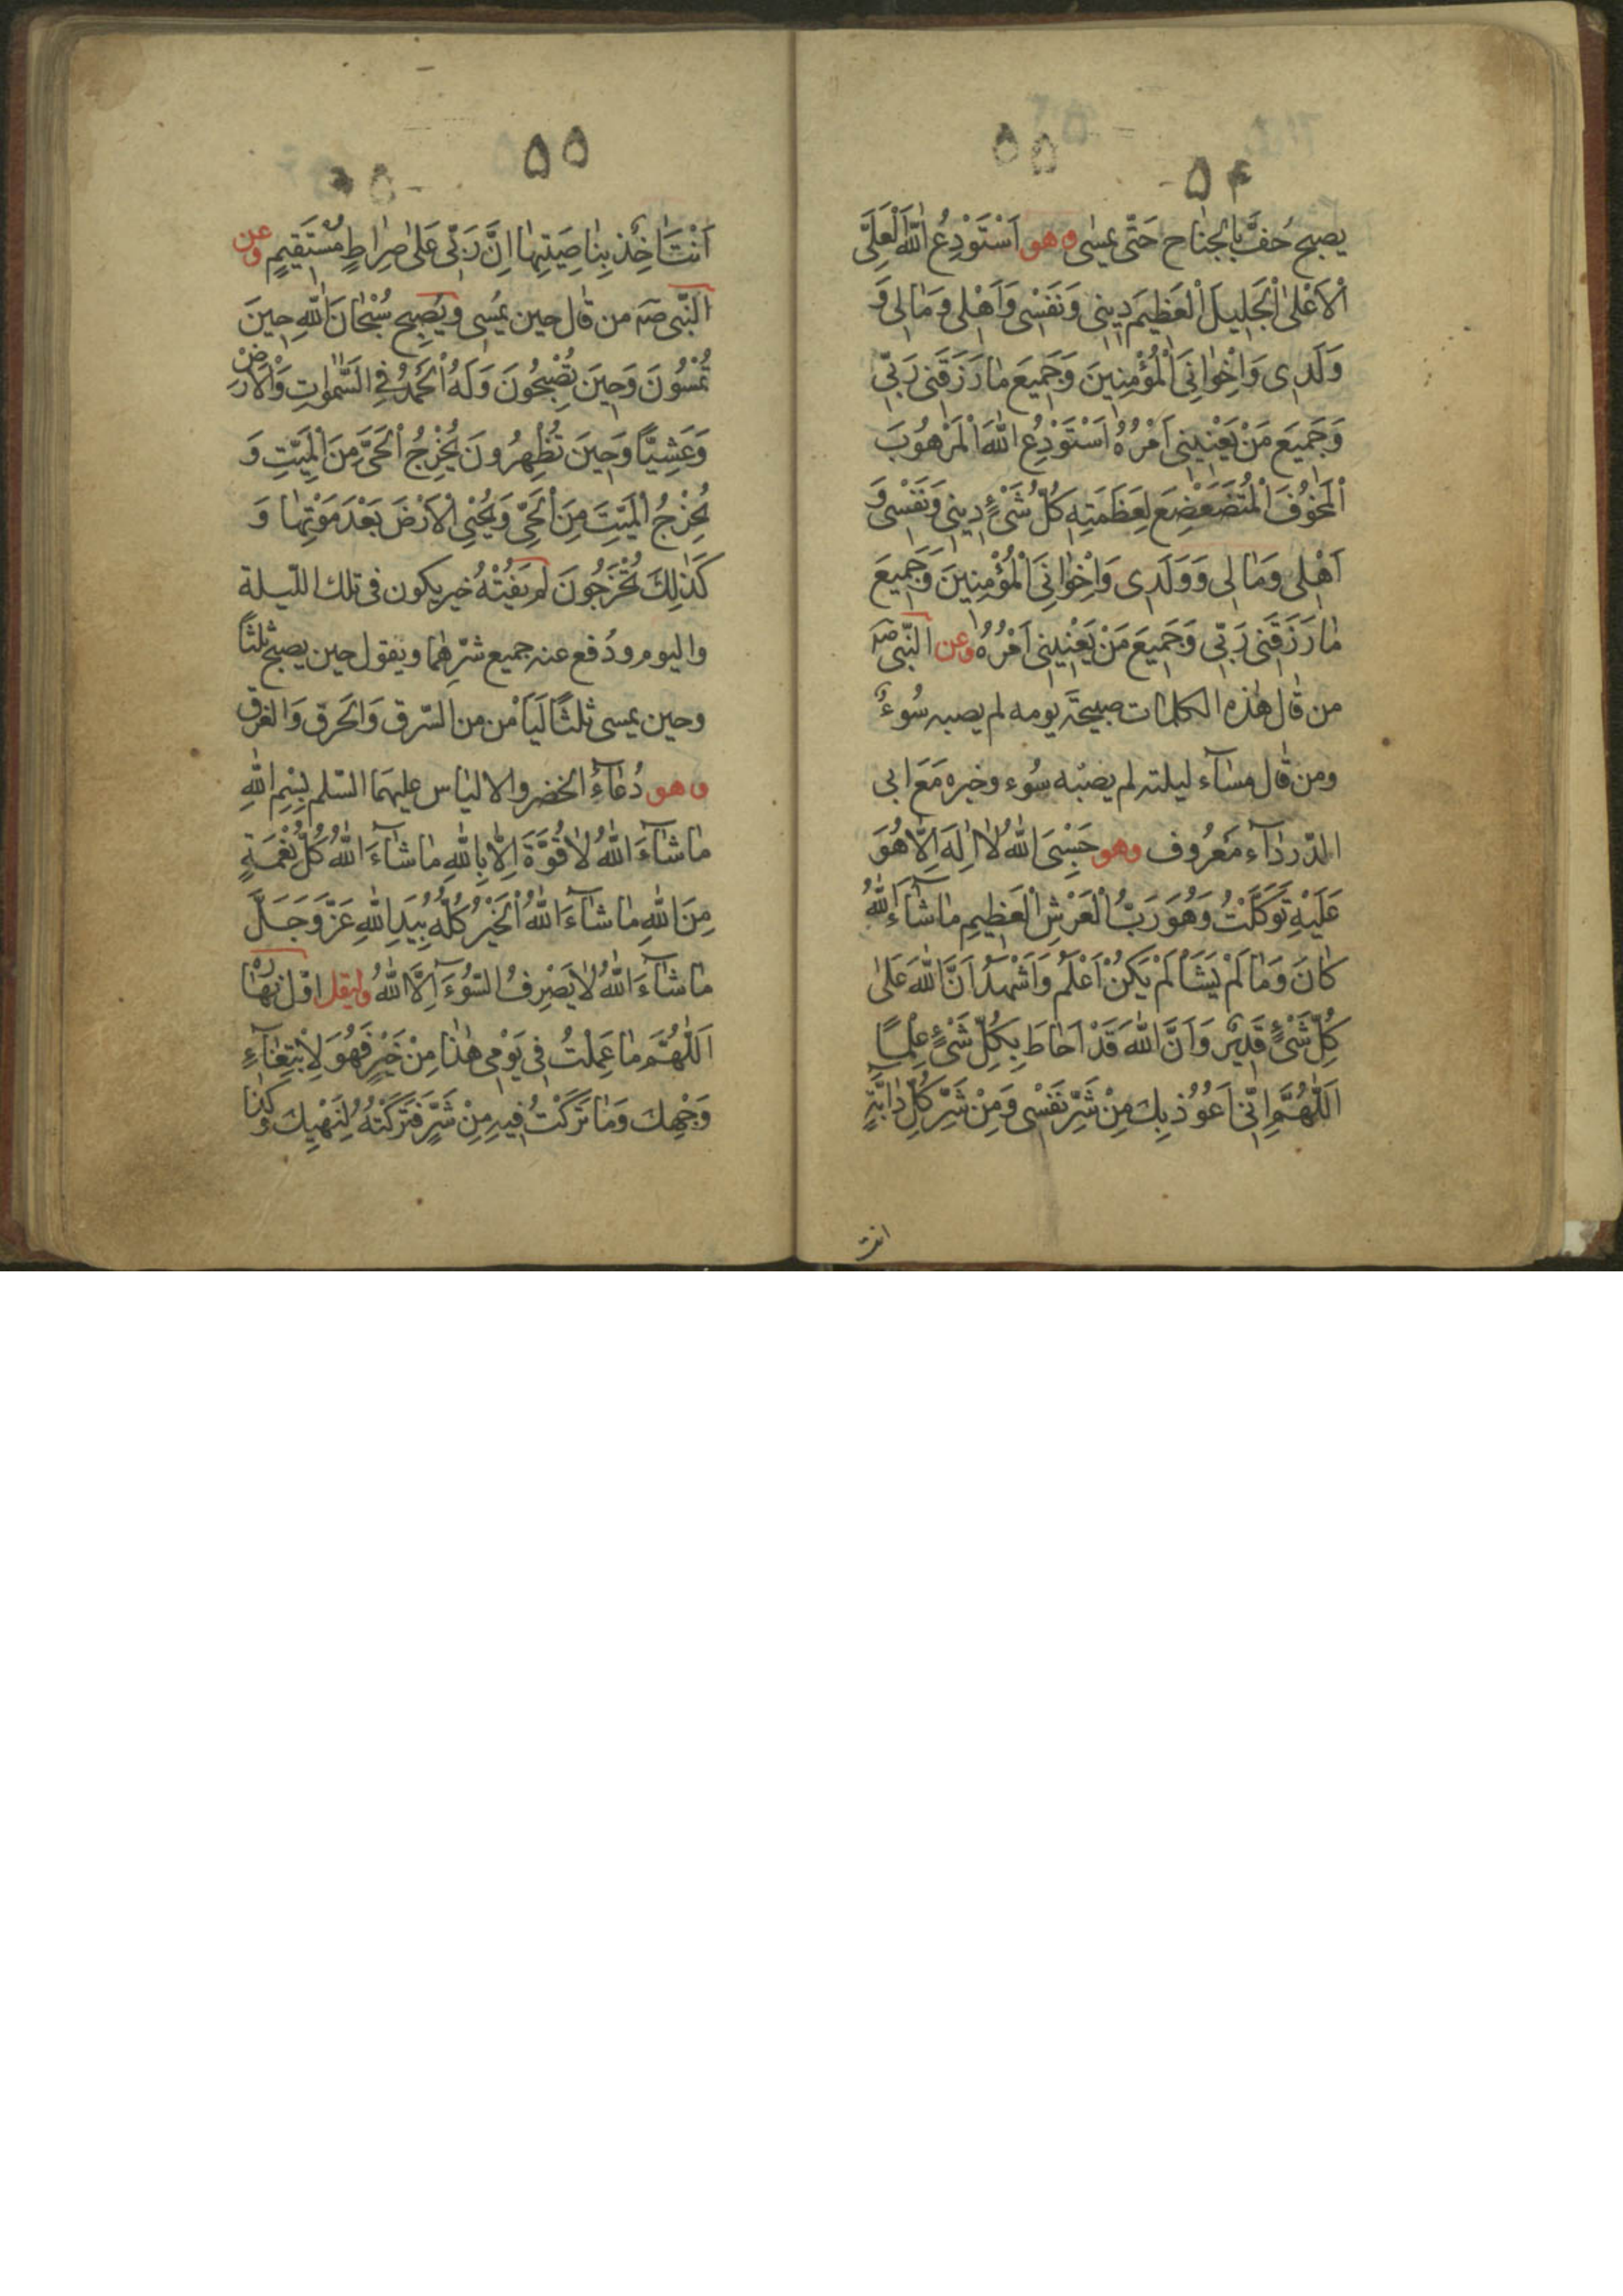 ۵۴
يصبح حُفَّ بِالجناح حَتّى يمسى وهو اَسْتَوْدِعُ اللّٰهَ الْعَلِىَّ
الْاَعْلىٰ الْجَليلَ الْعَظيمَ دِينى وَنَفْسى وَاَهْلى وَمٰالى وَ
وَلَدى وَاِخْوٰانِىَ الْمُؤْمِنينَ وَجَميعَ مٰا رَزَقَنى رَبّى
وَجَميعَ مَنْ يَعْنينى اَمْرُهُ اَسْتَوْدِعُ اللّٰهَ الْمَرْهُوبَ
الْمَخُوفَ الْمُتَضَعْضِعَ لِعَظَمَتِهِ كُلُّ شَىْءٍ دينى وَنَفْسى وَ
اَهْلى وَمٰالى وَوَلَدى وَاِخْوٰانِىَ الْمُؤْمِنينَ وَجَميعَ
مٰا رَزَقَنى رَبّى وَجَميعَ مَنْ يَعْنينى اَمْرُهُ وعن النّبى صَه
من قٰال هٰذه الكلمات صبيحَة يومه لم يصبه سُوءٌ
ومن قٰال مسٰآء ليلته لم يصبْه سُوء وخبره مَعَ ابى
الدّردٰآء مَعْرُوف وهو حَسْبِىَ اللّٰهُ لٰا اِلٰهَ اِلّٰا هُوَ
عَلَيْهِ تَوَكَّلْتُ وَهُوَ رَبُّ الْعَرْشِ الْعَظيمِ مٰا شٰآءَ اللّٰهُ
كٰانَ وَمٰا لَمْ يَشَأْ لَمْ يَكُنْ اَعْلَمُ وَاَشْهَدُ اَنَّ اللّٰهَ عَلىٰ
كُلِّ شَىْءٍ قَديرٌ وَاَنَّ اللّٰهَ قَدْ اَحٰاطَ بِكُلِّ شَىْءٍ عِلْماً
اَللّٰهُمَّ اِنّى اَعُوُذ بِكَ مِنْ شَرِّ نَفْسى وَمِنْ شَرِّ كُلِّ دٰابَّةٍ
انت
۵۵
اَنْتَ اٰخِذٌ بِنٰاصِيَتِهٰا اِنَّ رَبّى عَلىٰ صِرٰاطٍ مُسْتَقيمٍ وعن
النّبى صَه من قٰال حين يمُسى ويُصبح سُبْحٰانَ اللّٰهِ حينَ
تُمْسُونَ وَحينَ تُصْبِحُونَ وَلَهُ الْحَمْدُ فِى السَّمٰوٰاتِ وَالْاَرْضِ
وَعَشِيّاً وَحينَ تُظْهِرُونَ يُخْرِجُ الْحَىَّ مِنَ الْمَيِّتِ وَ
يُخْرِجُ الْمَيِّتَ مِنَ الْحَىِّ وَيُحْيِى الْاَرْضَ بَعْدَ مَوْتِهٰا وَ
كَذٰلِكَ تُخْرَجُونَ لم يَفُتْهُ خير يكون فى تلك اللّيلة
واليوم ودُفع عنه جميع شرّهِمٰا ويَقول حين يصبح ثلثاً
وحين يمسى ثلثاً لَيَأمن من السّرق وَالحَرق وَالغرق
وهو دُعٰآءُ الخضر والالياس عليهمَا السّلم بِسْمِ اللّٰهِ
مٰا شٰآءَ اللّٰهُ لٰا قُوَّةَ اِلّٰا بِاللّٰهِ مٰا شٰآءَ اللّٰهُ كُلُّ نِعْمَةٍ
مِنَ اللّٰهِ مٰا شٰآءَ اللّٰهُ الْخَيْرُ كُلُّهُ بِيَدِ اللّٰهِ عَزَّ وَجَلَّ
مٰا شٰآءَ اللّٰهُ لٰا يَصْرِفُ السُّوءَ اِلَّا اللّٰهُ وليقل اوّل نهٰاره
اَللّٰهُمَّ مٰا عَمِلْتُ فى يَوْمى هٰذٰا مِنْ خَيْرٍ فَهُوَ لِابْتِغٰآءِ
وَجْهِكَ وَمٰا تَرَكْتُ فيهِ مِنْ شَرٍّ فَتَرَكْتُهُ لِنَهْيِكَ وكذٰا